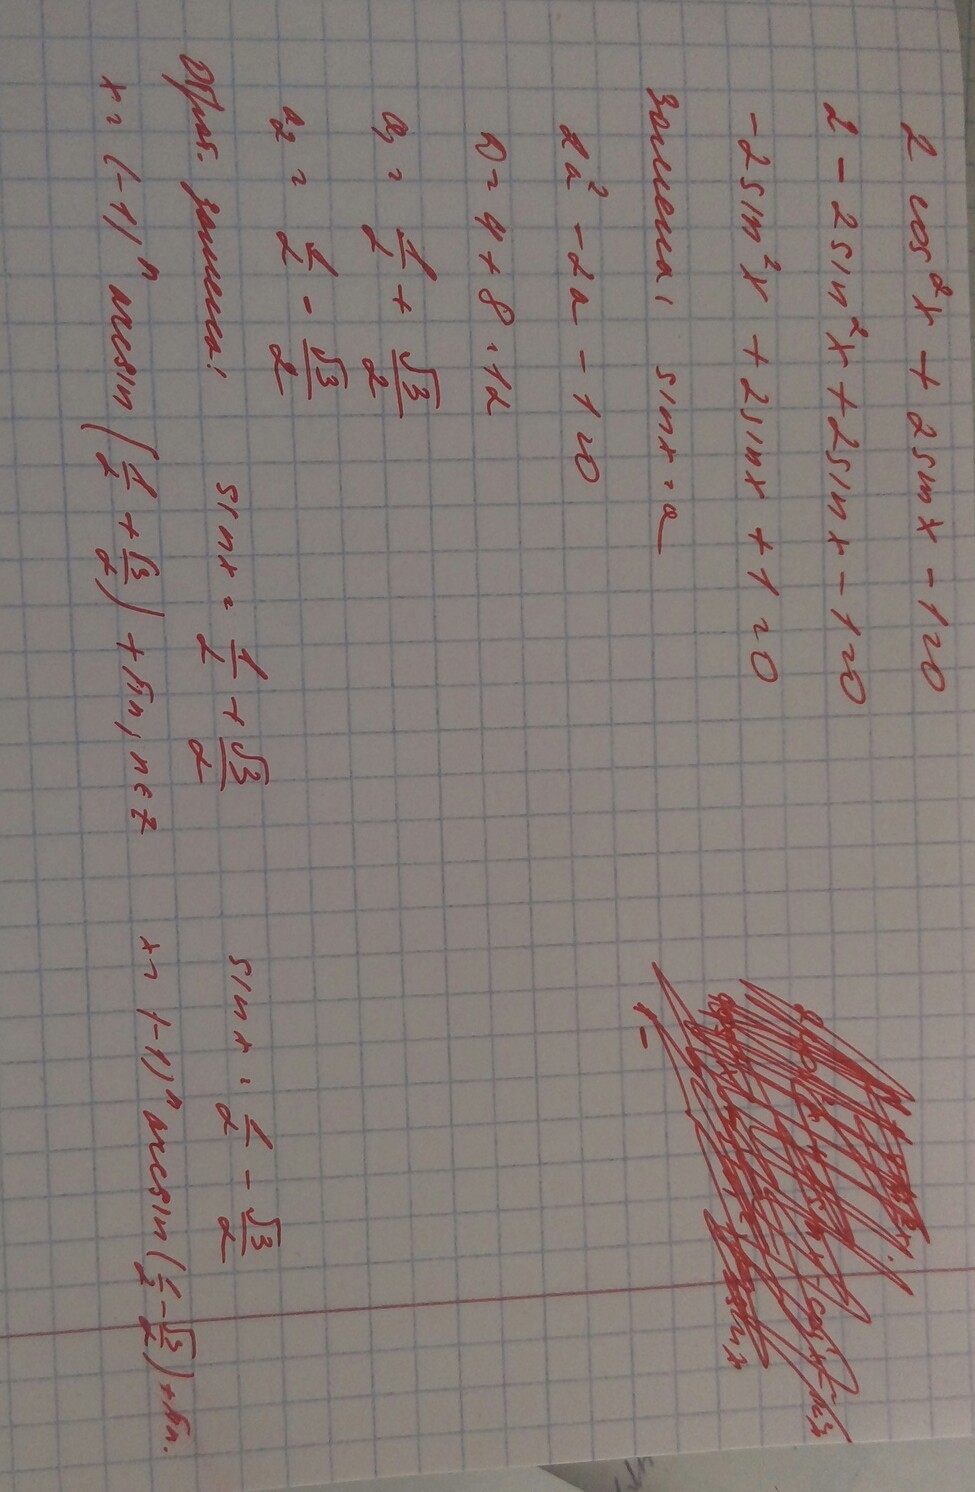 2 cos²x + 2sinx - 1 = 0
2 - 2sin²x + 2sinx - 1 = 0
-2sin²x + 2sinx + 1 = 0
Замена: sinx = a
2a² - 2a - 1 = 0
D = 4 + 8 = 12
a₁ = 1/2 + √3/2
a₂ = 1/2 - √3/2
Обрат. замена: sinx = 1/2 + √3/2 sinx = 1/2 - √3/2
x = (-1)ⁿ arcsin (1/2 + √3/2) + πn, n∈Z x = (-1)ⁿ arcsin (1/2 - √3/2) + πn.